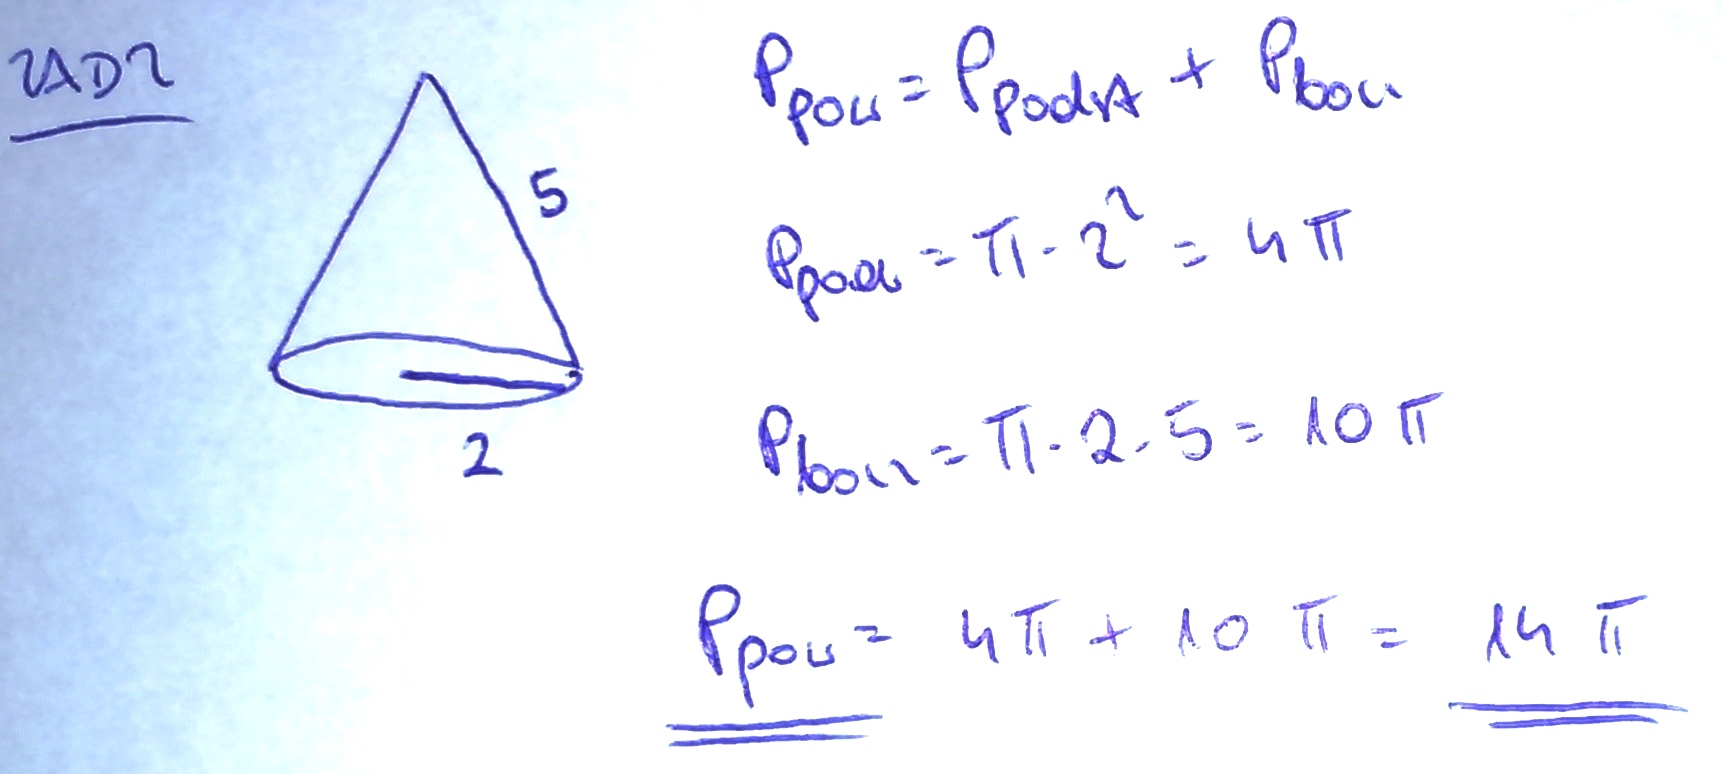 ZAD2
5
2
Ppow = Ppodst + Pbocz
= π · 2² = 4π
Pbocz = π · 2 · 5 = 10π
Ppow = 4π + 10π = 14π